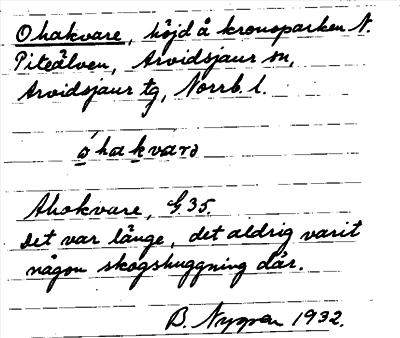 Ohakvare, höjd å kronoparken N.
Piteälven, Arvidsjaur sn,
Arvidsjaur tg, Norrb. l.
óhakvarə
Ahokvare, G. 35.
Det var länge, det aldrig varit
någon skogshuggning där.
B. Nygren 1932.